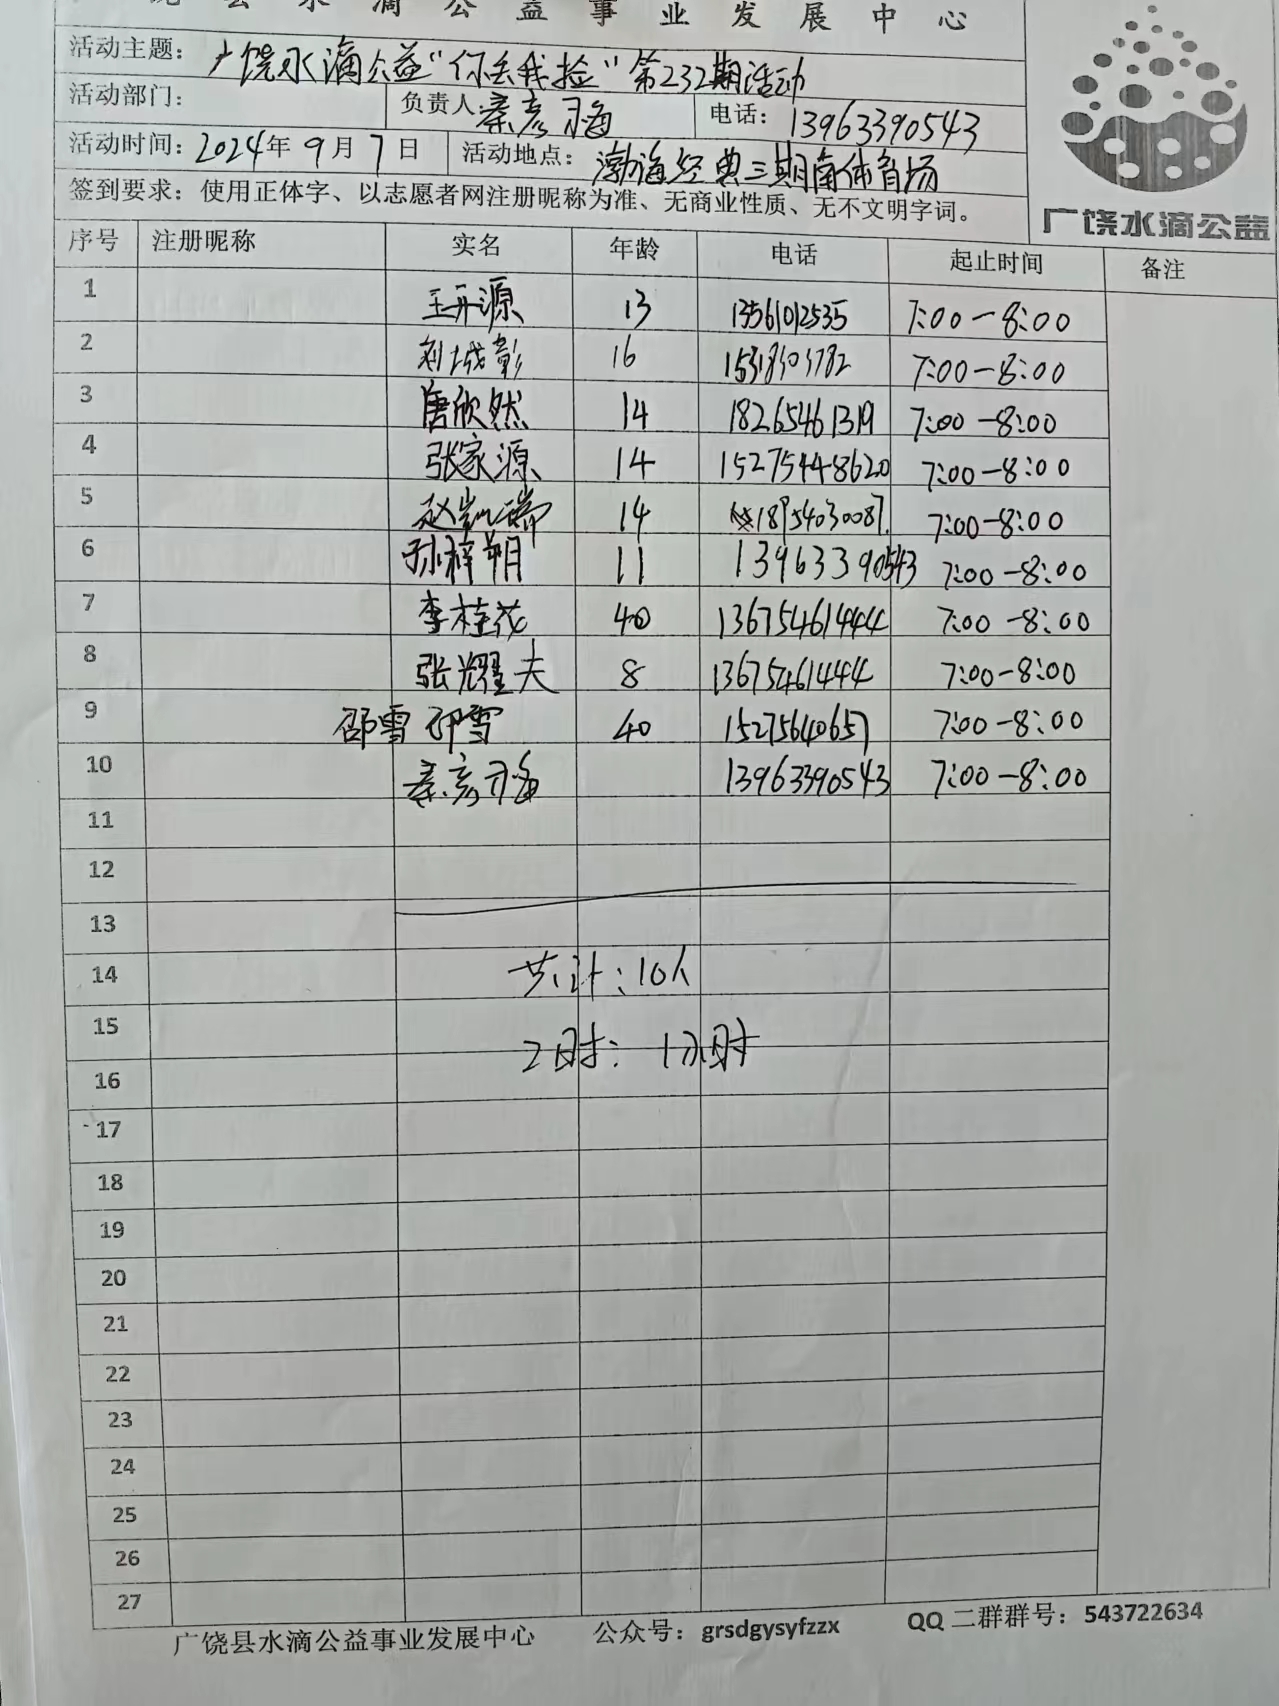 广饶县水滴公益事业发展中心
活动主题：广饶水滴公益“你丢我捡”第232期活动
活动部门： 负责人 秦彦海 电话：13963390543
活动时间：2024年9月7日 活动地点：渤海经典三期南体育场
签到要求：使用正体字、以志愿者网注册昵称为准、无商业性质、无不文明字词。
广饶水滴公益
序号 注册昵称 实名 年龄 电话 起止时间 备注
1 王开源 13 13561012535 7:00-8:00
2 刘城彰 16 7:00-8:00
3 唐欣然 14 18265461319 7:00-8:00
4 张家源 14 15275448620 7:00-8:00
5 赵凯瑞 14 18954030087 7:00-8:00
6 孙梓朔 11 13963390543 7:00-8:00
7 李桂花 40 13675461444 7:00-8:00
8 张耀夫 8 13675461444 7:00-8:00
9 邵雪 邵雪 40 15275640657 7:00-8:00
10 秦彦海 13963390543 7:00-8:00
11
12
13
14 共计：10人
15 时：1小时
16
17
18
19
20
21
22
23
24
25
26
27
广饶县水滴公益事业发展中心 公众号：grsdgysyfzzx QQ二群群号：543722634